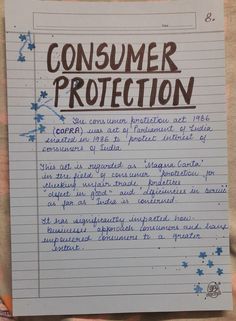 8.
CONSUMER
PROTECTION
The consumer protection act 1986
(COPRA) was act of Parliament of India
enacted in 1986 to protect interest of
consumers of India
This act is regarded as "Magna Carta"
in the field of consumer protection for
checking unfair trade practices
"defect in good" and "deficiencies in service"
as far as India is concerned.
It has significantly impacted how
businesses approach consumers and have
empowered consumers to a greater
extent.